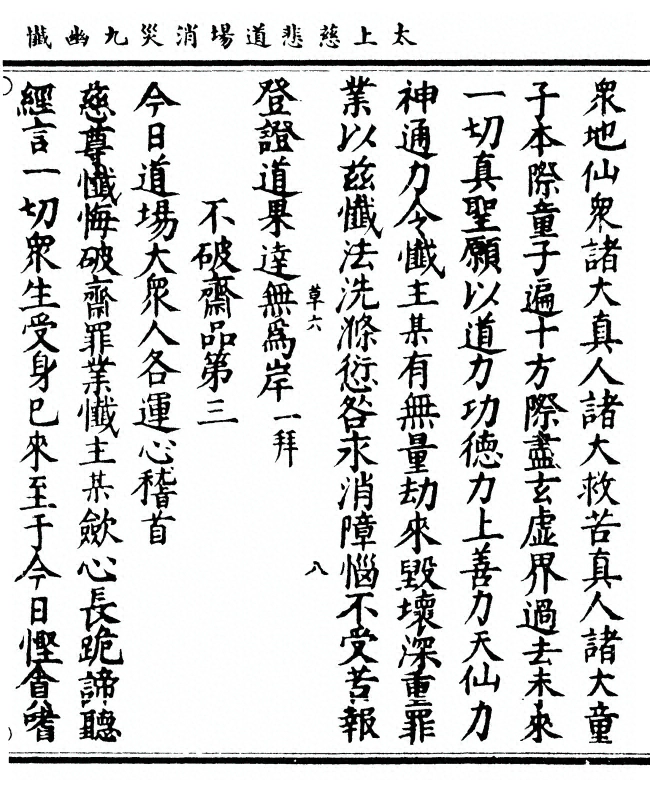 太上慈悲道場消災九幽懺
眾地仙眾諸大真人諸大救苦真人諸大童
子本際童子遍十方際盡玄虛界過去未來
一切真聖願以道力功德力上善力天仙力
神通力令懺主某有無量劫來毀壞深重罪
業以茲懺法洗滌愆咎求消障惱不受苦報
草六
八
登證道果達無為岸一拜
不破齋品第三
今日道場大眾人各運心稽首
慈尊懺悔破齋罪業懺主某歛心長跪諦聽
經言一切眾生受身已來至于今日慳貪嗜